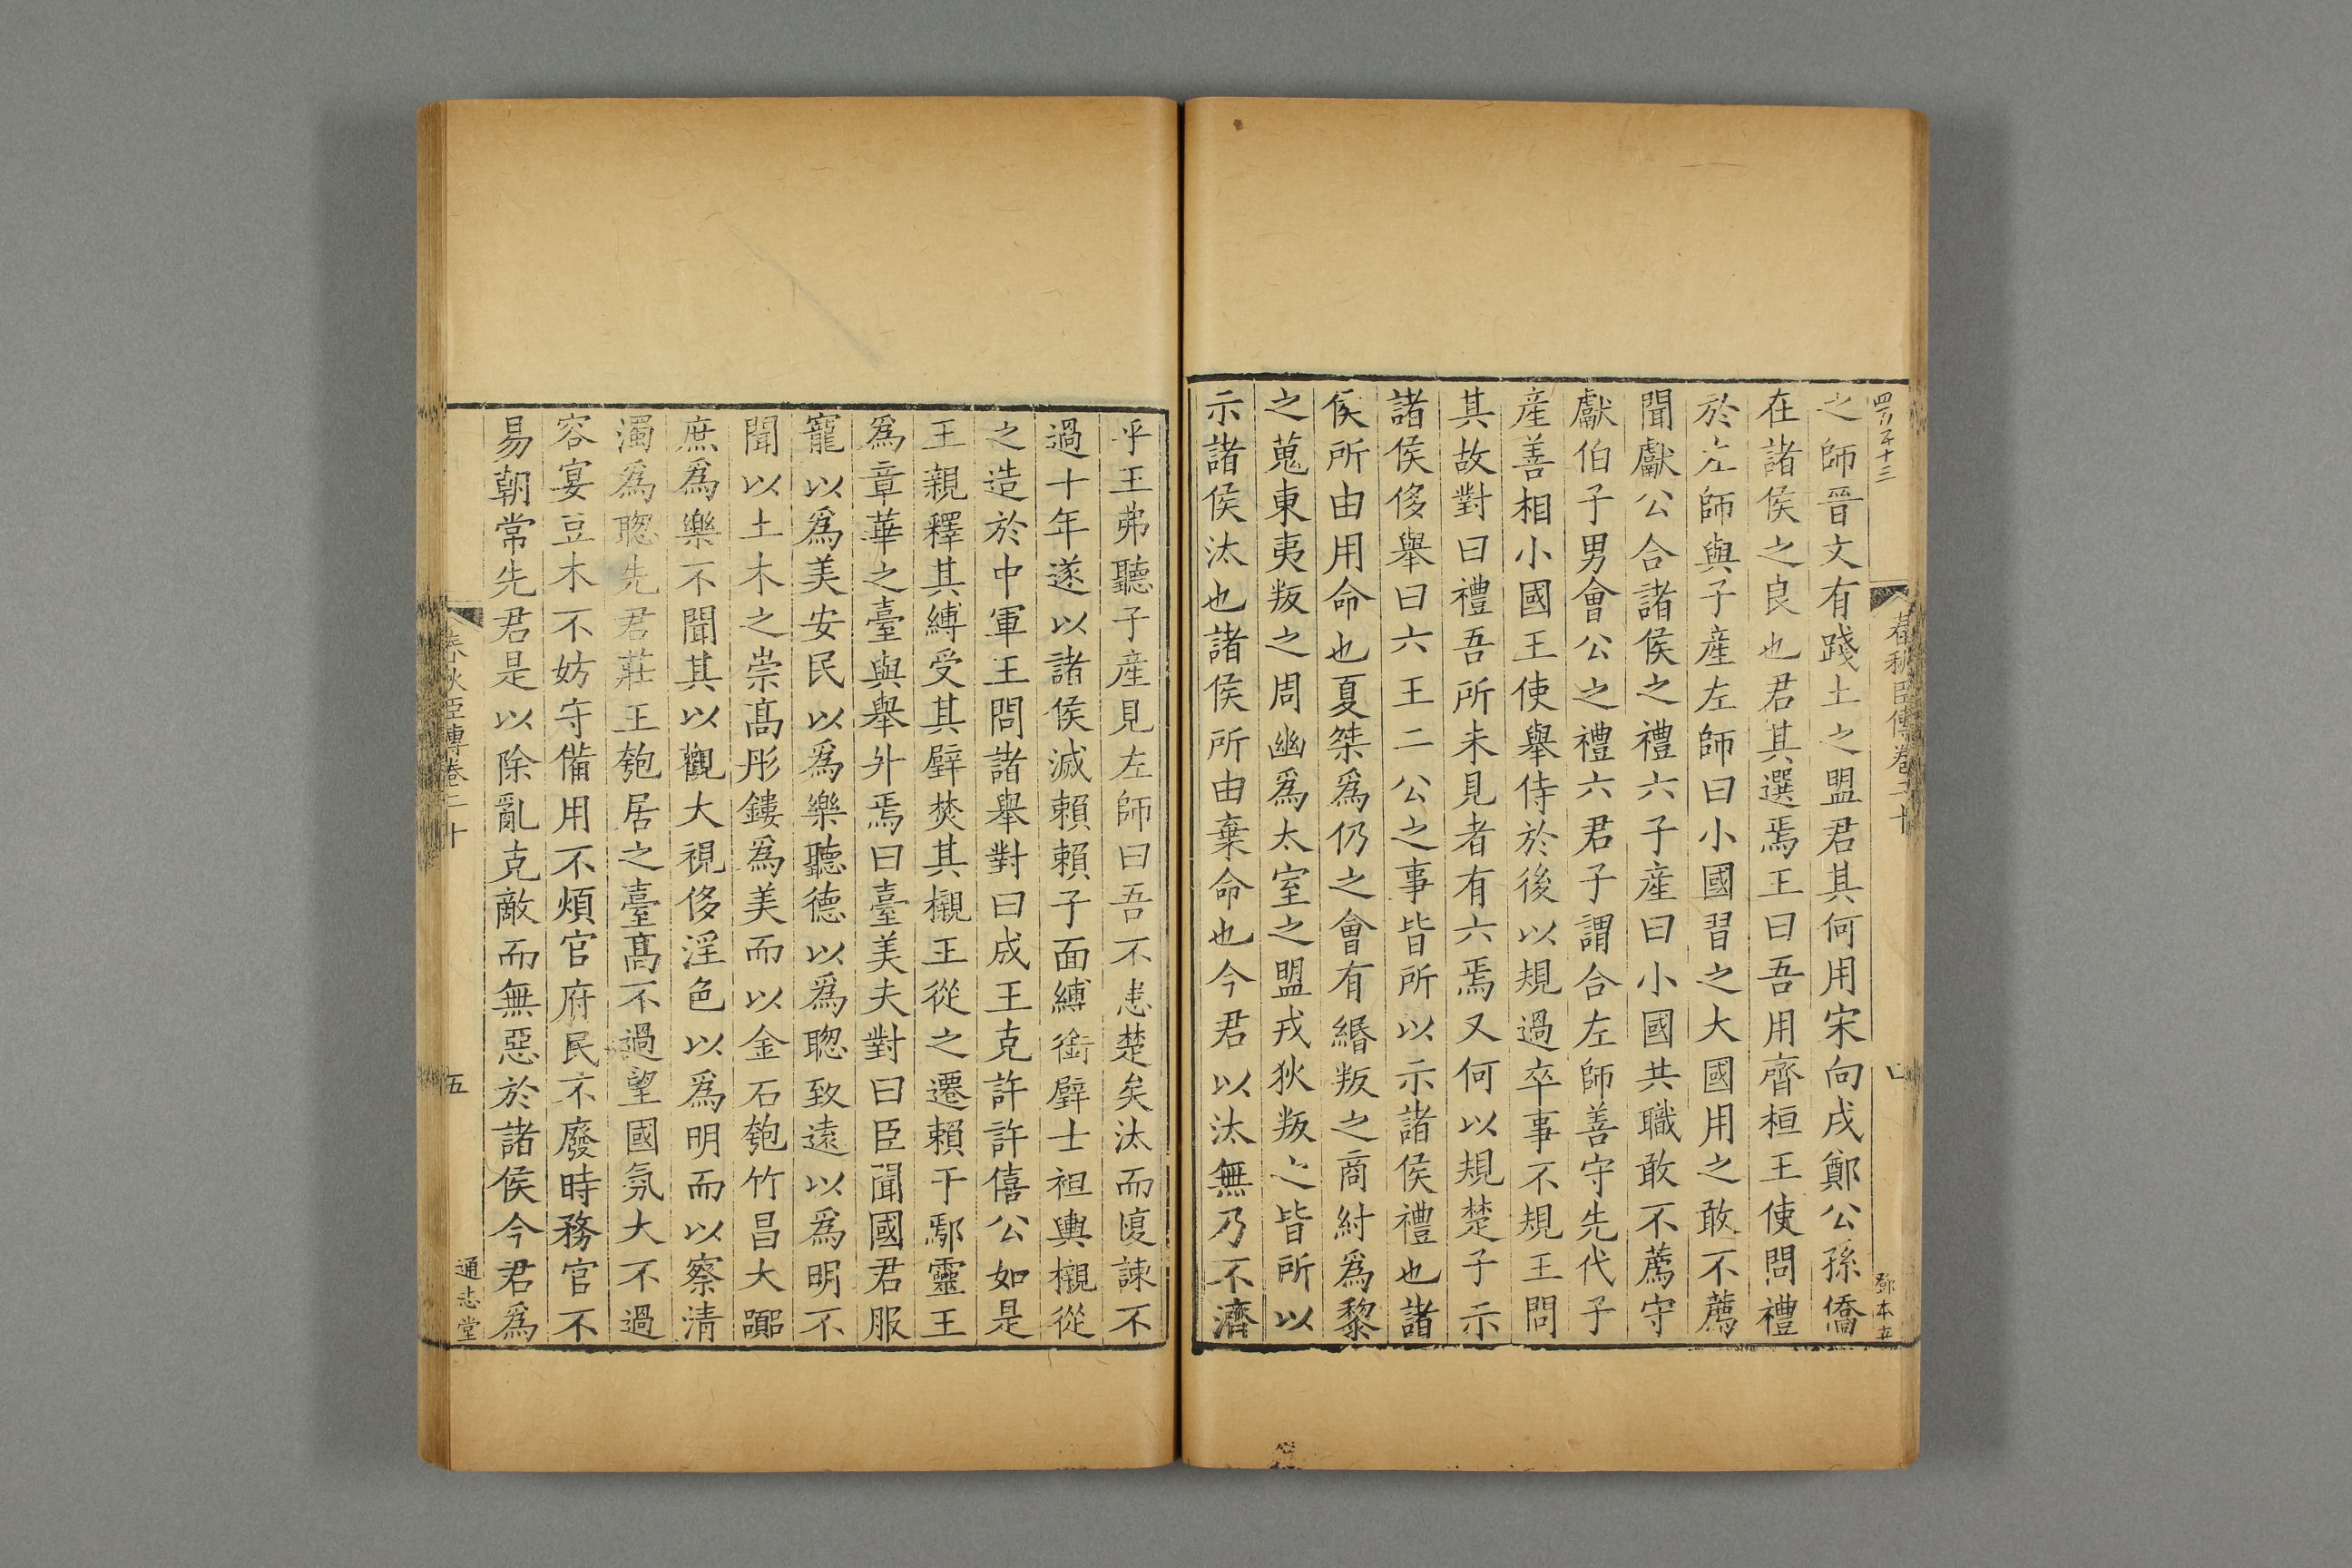 四百五十三
春秋臣傳卷二十
鄧本立
之師晉文有踐土之盟君其何用宋向戌鄭公孫僑
在諸侯之良也君其選焉王曰吾用齊桓王使問禮
於左師與子産左師曰小國習之大國用之敢不薦
聞獻公合諸侯之禮六子産曰小國共職敢不薦守
獻伯子男會公之禮六君子謂合左師善守先代子
産善相小國王使舉侍於後以規過卒事不規王問
其故對曰禮吾所未見者有六焉又何以規楚子示
諸侯侈舉曰六王二公之事皆所以示諸侯禮也諸
侯所由用命也夏桀爲仍之會有緡叛之商紂爲黎
之蒐東夷叛之周幽爲太室之盟戎狄叛之皆所以
示諸侯汰也諸侯所由棄命也今君以汰無乃不濟
乎王弗聽子産見左師曰吾不患楚矣汰而愎諫不
過十年遂以諸侯滅賴賴子面縛銜璧士袒輿櫬從
之造於中軍王問諸舉對曰成王克許許僖公如是
王親釋其縛受其璧焚其櫬王從之遷賴于鄢靈王
爲章華之臺與舉升焉曰臺美夫對曰臣聞國君服
寵以爲美安民以爲樂聽德以爲聰致遠以爲明不
聞以土木之崇高彤鏤爲美而以金石匏竹昌大踯
庶爲樂不聞其以觀大視侈淫色以爲明而以察清
濁爲聰先君莊王匏居之臺高不過望國氛大不過
容宴豆木不妨守備用不煩官府民不廢時務官不
易朝常先君是以除亂克敵而無惡於諸侯今君爲
春秋臣傳卷二十
五
通志堂